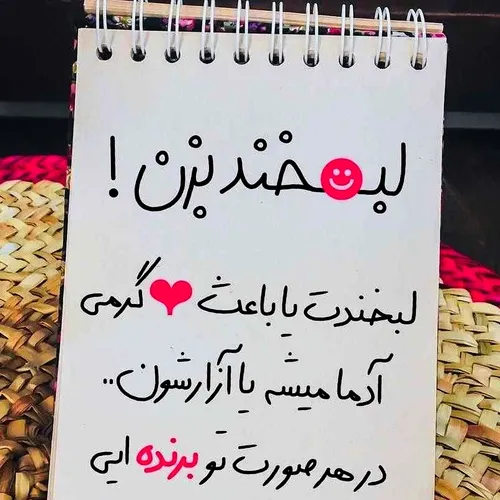 لبخند بزن !
لبخندت یا باعث ❤ گرمی
آدما میشه یا آزارشون..
در هر صورت تو برنده ایی